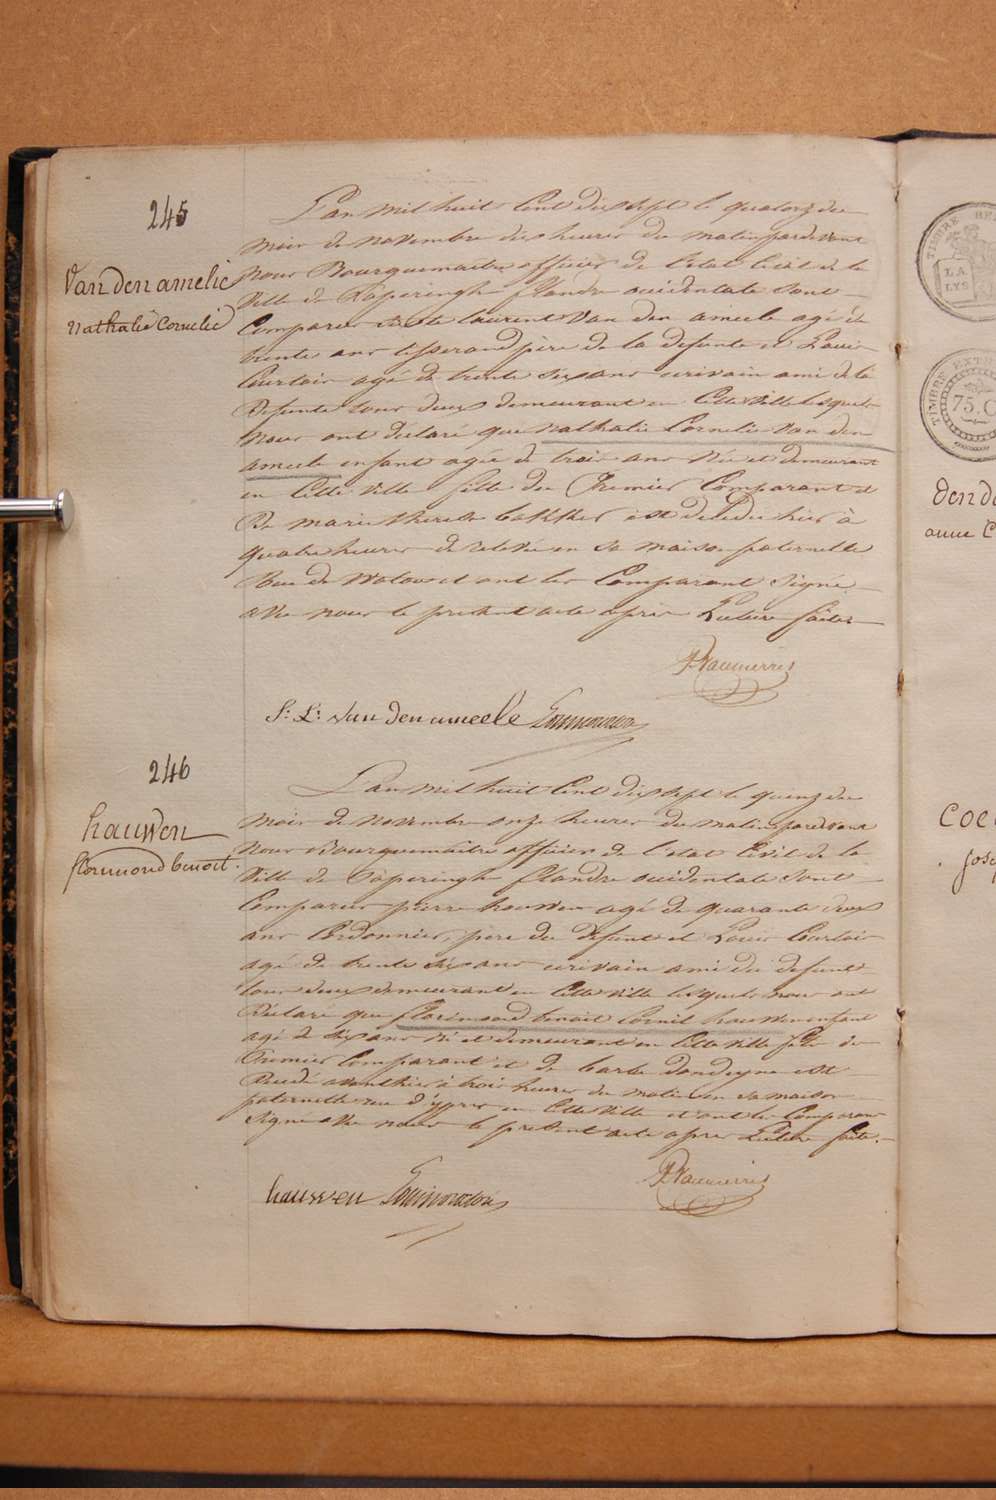 245
Van den amelie
Nathalie Cornelie
L'an mil huit Cent dix sept le quatorze du
mois de novembre dix heures du matin pardevant
nous Bourguemaitre officier de l'état Civil de la
Ville de Poperinghe flandre occidentale sont
Comparus laurent Van den ameele agé de
trente ans tisserand père de la defunte et Louis
Courtois agé de trente six ans ecrivain ami de la
Defunte tous deux demeurant en Cette Ville lesquels
nous ont déclaré que nathalie Cornelie Van den
ameele enfant agée de trois ans Née et demeurant
en Cette Ville fille du Premier Comparant et
De marie therese est décédée hier à
quatre heures de relevée en sa maison paternelle
Rue de et ont les Comparant Signé
avec nous le present acte après Lecture faite
S: L: Van Den ameele
246
hauwen
florimond benoit
L'an mil huit Cent dix sept le quinze du
mois de novembre onze heures du matin pardevant
nous Bourguemaitre officier de l'etat Civil de la
Ville de Poperinghe flandre occidentale sont
Comparus pierre hauwen agé de quarante deux
ans Cordonnier, père du défunt et Louis Courtois
agé de trente six ans ecrivain ami du defunt
tous deux demeurant en Cette Ville lesquels nous ont
Déclaré que florimond benoit Cornil hauwen enfant
agé de six ans né et demeurant en Cette Ville fils du
Premier Comparant et de barbe est
Décédé avant hier à trois heures du matin en sa maison
paternelle rue d'ypres en Cette Ville et ont les Comparans
Signé avec nous le présent acte apres Lecture faite.
hauwen
TIMBRE
LA
LYS
TIMBRE EXTR
75. C
anne C